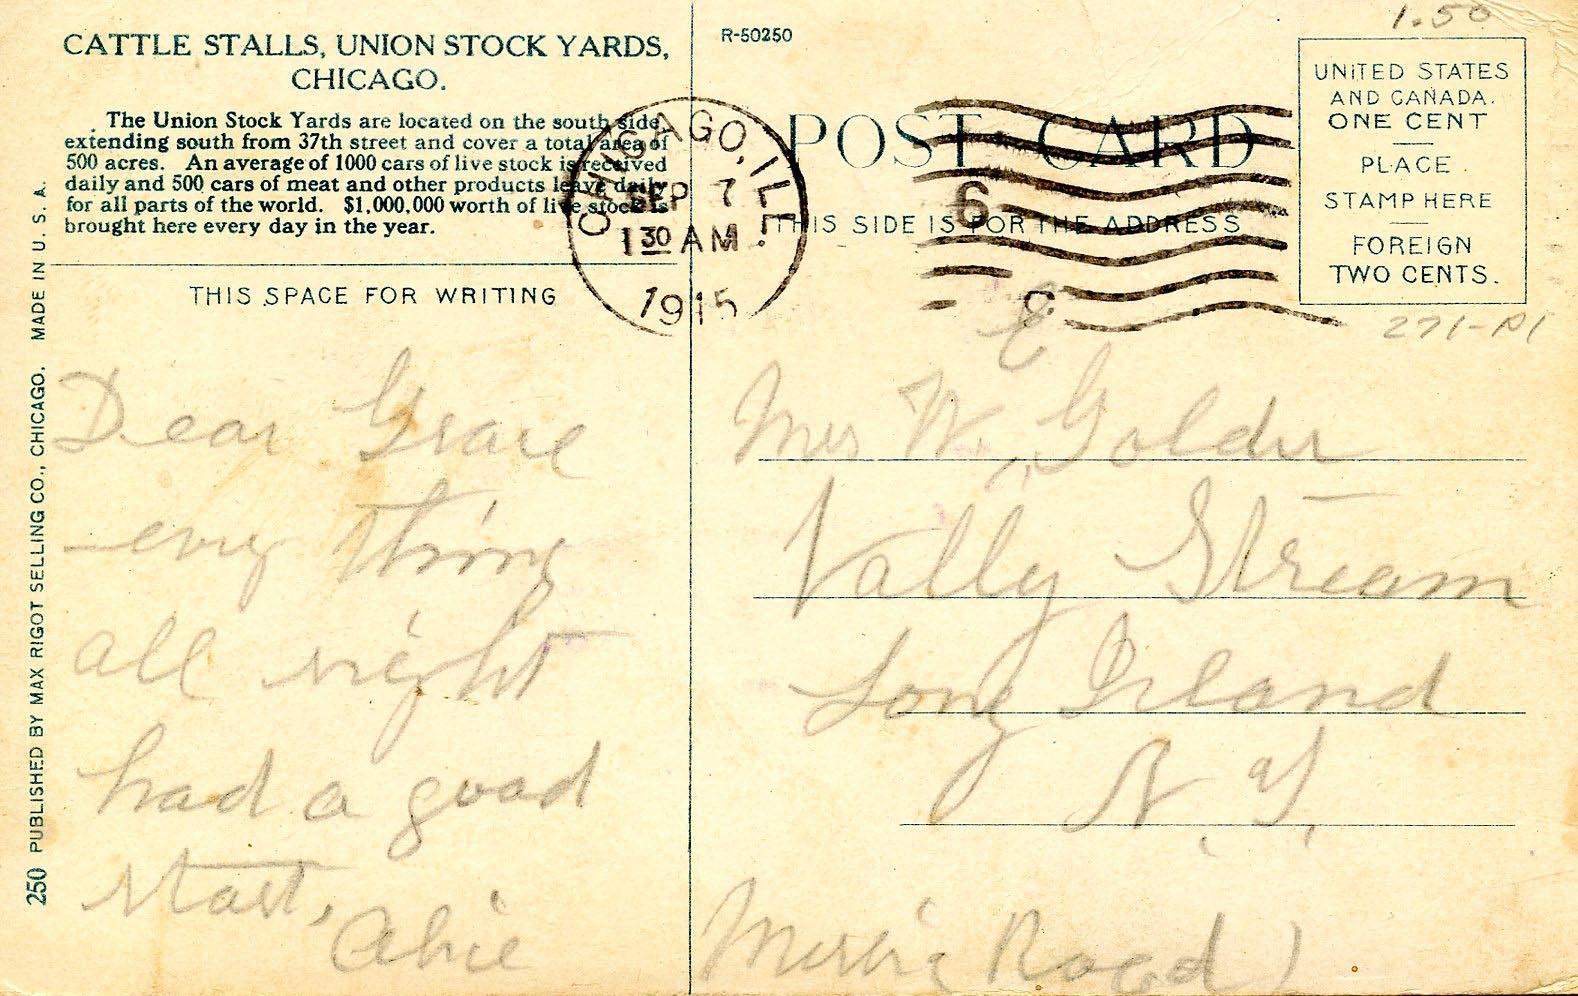 1.50
CATTLE STALLS, UNION STOCK YARDS,
CHICAGO.
The Union Stock Yards are located on the south side
extending south from 37th street and cover a total area of
500 acres. An average of 1000 cars of live stock is received
daily and 500 cars of meat and other products leave daily
for all parts of the world. $1,000,000 worth of live stock is
brought here every day in the year.
THIS SPACE FOR WRITING
Dear Grace
every thing
all right
had a good
start,
Abie
250 PUBLISHED BY MAX RIGOT SELLING CO., CHICAGO. MADE IN U. S. A.
CHICAGO, ILL.
SEP 7
1 30 AM
1915
6
R-50250
POST CARD
THIS SIDE IS FOR THE ADDRESS
UNITED STATES
AND CANADA.
ONE CENT
PLACE
STAMP HERE
FOREIGN
TWO CENTS.
271-P1
Mrs W. E Golder
Vally Stream
Long Island
N. Y.
Road)